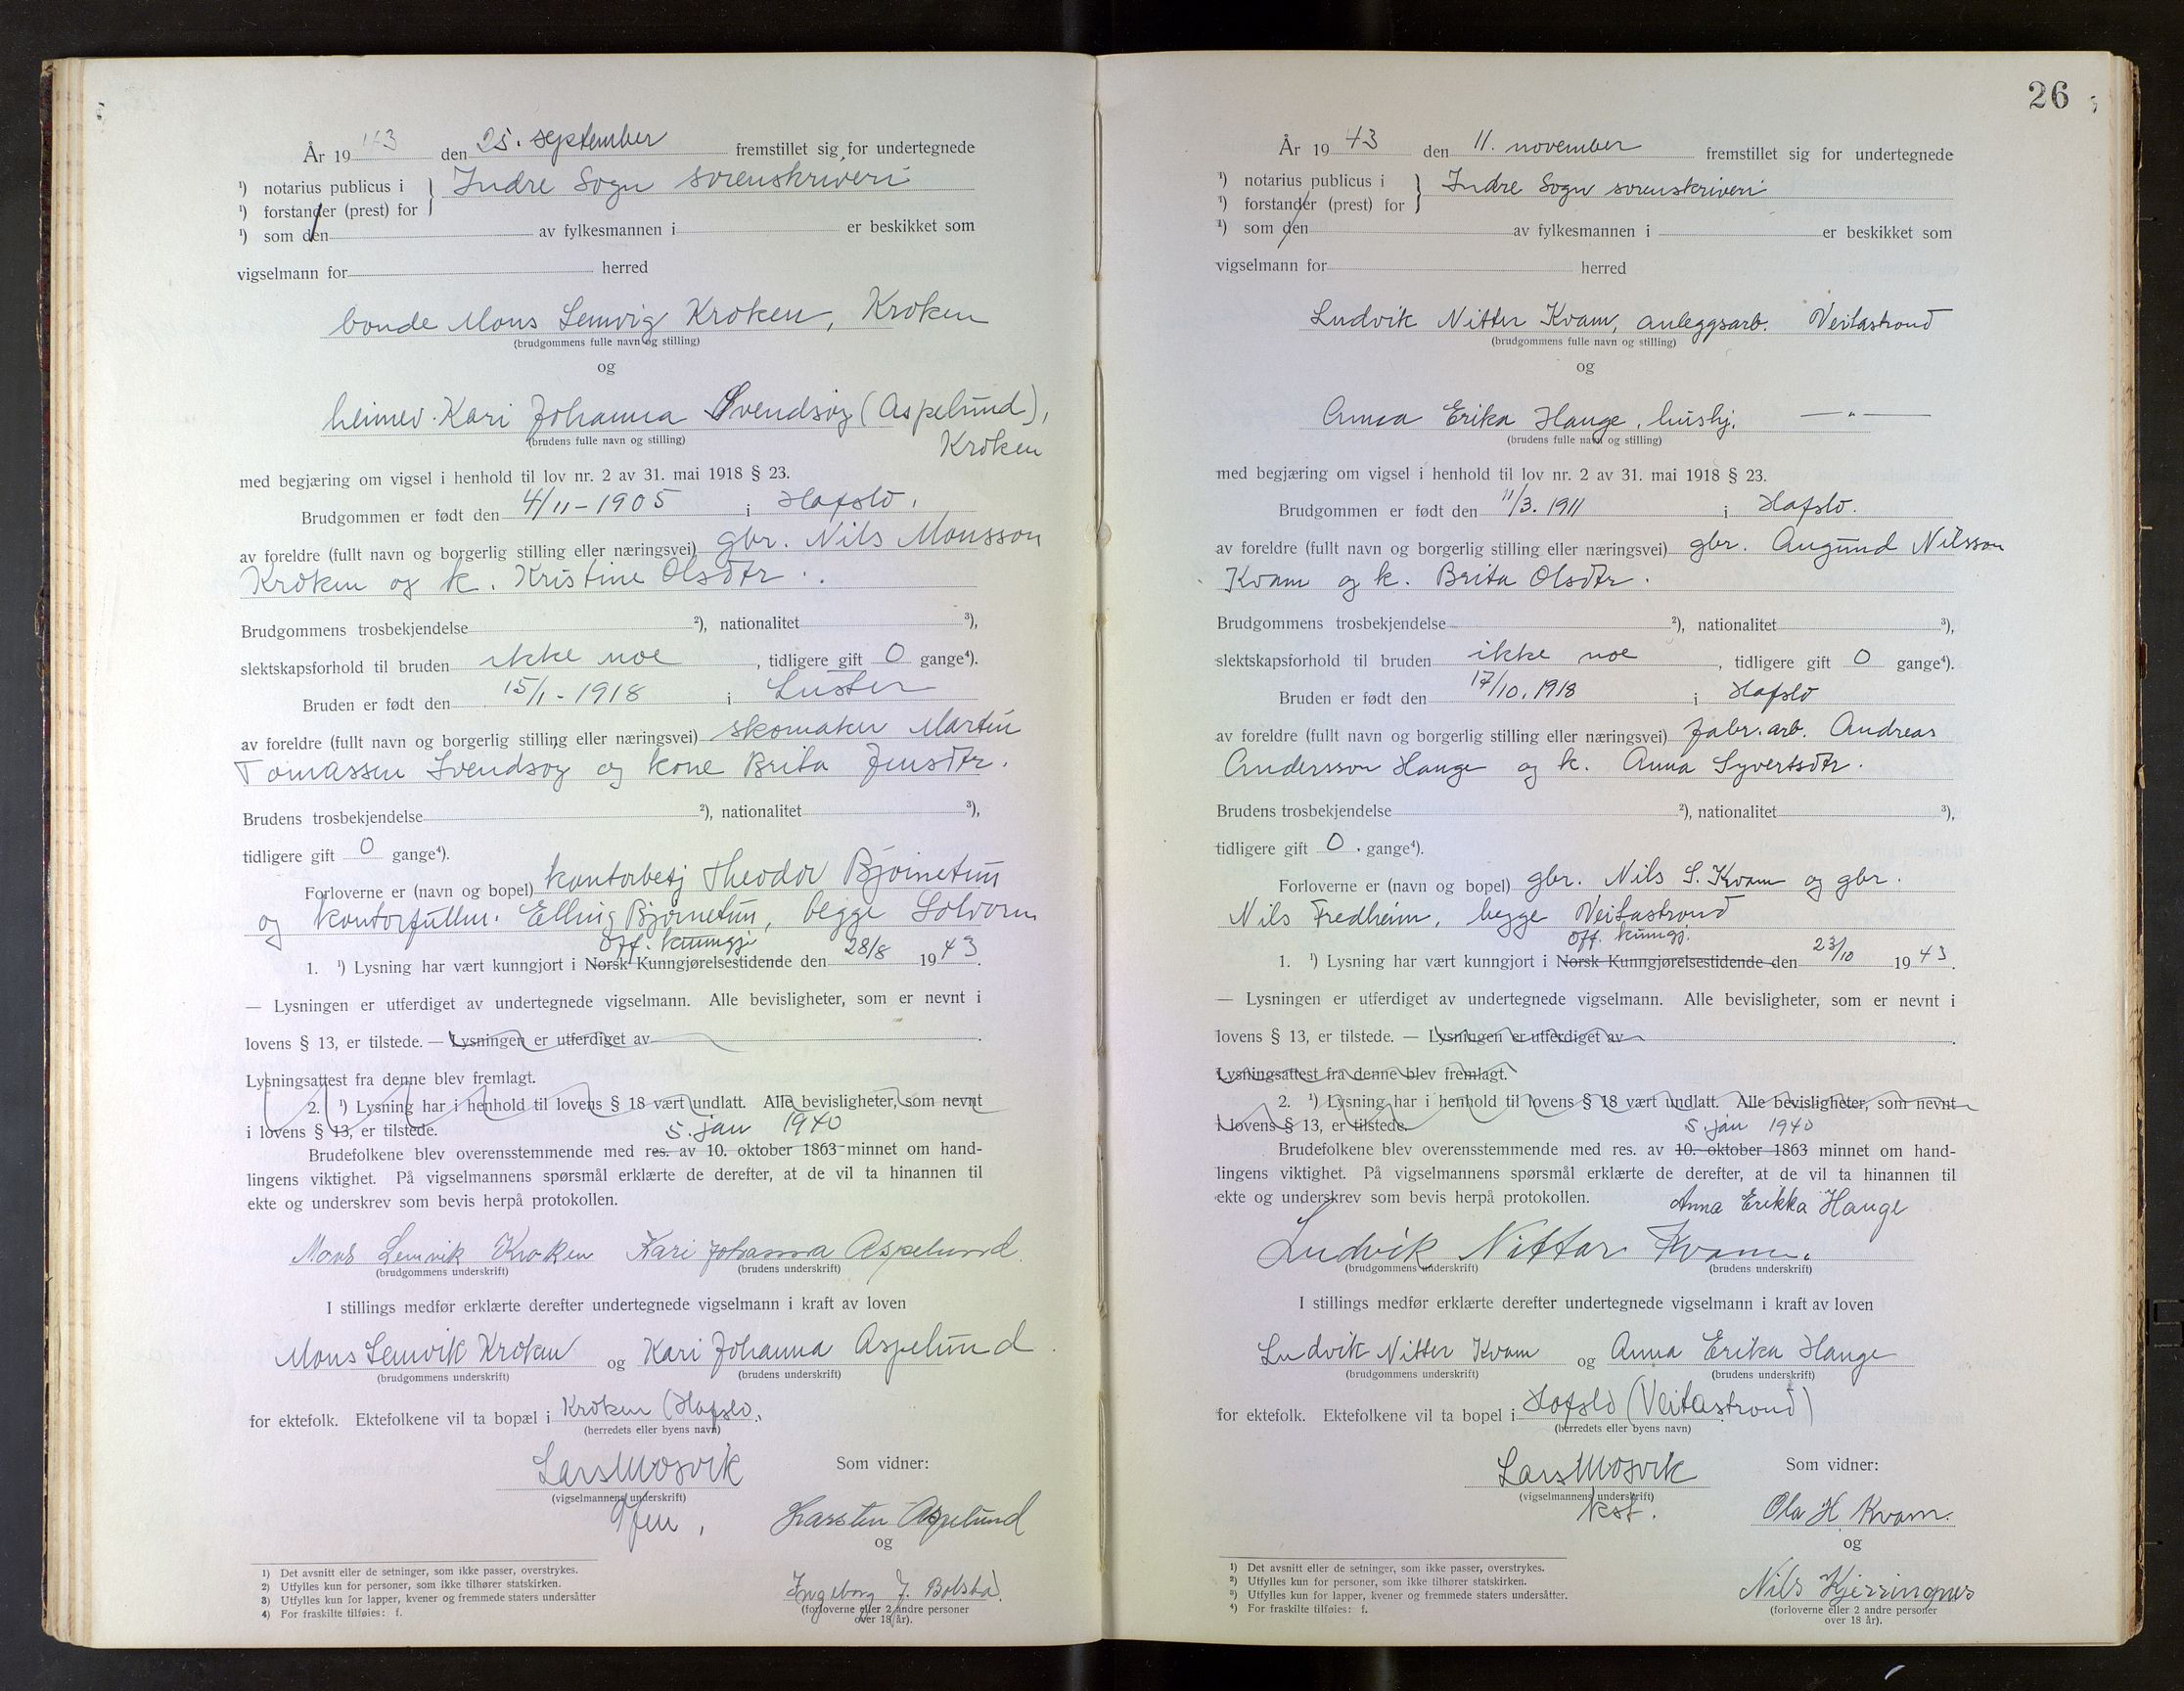 År 1943 den 25. september fremstillet sig for undertegnede
¹) notarius publicus i } Indre Sogn sorenskriveri
¹) forstander (prest) for
¹) som den av fylkesmannen i er beskikket som
vigselmann for herred
bonde Mons Lemvig Kroken, Kroken
(brudgommens fulle navn og stilling)
og
heimev. Kari Johanna Svendsøy (Aspelund),
(brudens fulle navn og stilling)
Kroken
med begjæring om vigsel i henhold til lov nr. 2 av 31. mai 1918 § 23.
Brudgommen er født den 4/11-1905 i Hafslo.
av foreldre (fullt navn og borgerlig stilling eller næringsvei) gbr. Nils Monsson
Kroken og k. Kristine Olsdtr.
Brudgommens trosbekjendelse ²), nationalitet ³),
slektskapsforhold til bruden ikke noe, tidligere gift 0 gange⁴).
Bruden er født den 15/1-1918 i Luster
av foreldre (fullt navn og borgerlig stilling eller næringsvei) skomaker Martin
Tomassen Svendsøy og kone Brita Jensdtr.
Brudens trosbekjendelse ²), nationalitet ³),
tidligere gift 0 gange⁴).
Forloverne er (navn og bopel) kontorbetj Theodor Bjørnetun
og kontorfullm. Elling Bjørnetun, begge Solvorn
off. kunngj.
1. ¹) Lysning har vært kunngjort i Norsk Kunngjørelsestidende den 28/8 1943.
— Lysningen er utferdiget av undertegnede vigselmann. Alle bevisligheter, som er nevnt i
lovens § 13, er tilstede. — Lysningen er utferdiget av
Lysningsattest fra denne blev fremlagt.
2. ¹) Lysning har i henhold til lovens § 18 vært undlatt. Alle bevisligheter, som nevnt
i lovens § 13, er tilstede.
5. jan 1940
Brudefolkene blev overensstemmende med res. av 10. oktober 1863 minnet om hand-
lingens viktighet. På vigselmannens spørsmål erklærte de derefter, at de vil ta hinannen til
ekte og underskrev som bevis herpå protokollen.
Mons Lemvik Kroken Kari Johanna Aspelund.
(brudgommens underskrift) (brudens underskrift)
I stillings medfør erklærte derefter undertegnede vigselmann i kraft av loven
Mons Lemvik Kroken og Kari Johanna Aspelund.
(brudgommens underskrift) (brudens underskrift)
for ektefolk. Ektefolkene vil ta bopæl i Kroken (Hafslo.
(herredets eller byens navn)
Lars Mosvik Som vidner:
(vigselmannens underskrift)
Karsten Aspelund
og
Ingeborg J. Bolstad.
(forloverne eller 2 andre personer
over 18 år).
1) Det avsnitt eller de setninger, som ikke passer, overstrykes.
2) Utfylles kun for personer, som ikke tilhører statskirken.
3) Utfylles kun for lapper, kvener og fremmede staters undersåtter
4) For fraskilte tilføies: f.
26
År 1943 den 11. november fremstillet sig for undertegnede
¹) notarius publicus i } Indre Sogn sorenskriveri
¹) forstander (prest) for
¹) som den av fylkesmannen i er beskikket som
vigselmann for herred
Ludvik Nitter Kvam, anleggsarb. Veitastrond
(brudgommens fulle navn og stilling)
og
Anna Erika Hauge, hushj. — " —
(brudens fulle navn og stilling)
med begjæring om vigsel i henhold til lov nr. 2 av 31. mai 1918 § 23.
Brudgommen er født den 11/3. 1911 i Hafslo.
av foreldre (fullt navn og borgerlig stilling eller næringsvei) gbr. Augund Nilsson
Kvam og k. Brita Olsdtr.
Brudgommens trosbekjendelse ²), nationalitet ³),
slektskapsforhold til bruden ikke noe, tidligere gift 0 gange⁴).
Bruden er født den 17/10. 1918 i Hafslo
av foreldre (fullt navn og borgerlig stilling eller næringsvei) fabr. arb. Andreas
Andersson Hauge og k. Anna Syvertsdtr.
Brudens trosbekjendelse ²), nationalitet ³),
tidligere gift 0. gange⁴).
Forloverne er (navn og bopel) gbr. Nils S. Kvam og gbr.
Nils Fredheim, begge Veitastrond
off. kunngj.
1. ¹) Lysning har vært kunngjort i Norsk Kunngjørelsestidende den 23/10 1943.
— Lysningen er utferdiget av undertegnede vigselmann. Alle bevisligheter, som er nevnt i
lovens § 13, er tilstede. — Lysningen er utferdiget av
Lysningsattest fra denne blev fremlagt.
2. ¹) Lysning har i henhold til lovens § 18 vært undlatt. Alle bevisligheter, som nevnt
i lovens § 13, er tilstede.
5. jan 1940
Brudefolkene blev overensstemmende med res. av 10. oktober 1863 minnet om hand-
lingens viktighet. På vigselmannens spørsmål erklærte de derefter, at de vil ta hinannen til
ekte og underskrev som bevis herpå protokollen.
Anna Erikka Hauge
Ludvik Nittar Kvam.
(brudgommens underskrift) (brudens underskrift)
I stillings medfør erklærte derefter undertegnede vigselmann i kraft av loven
Ludvik Nitter Kvam og Anna Erika Hauge
(brudgommens underskrift) (brudens underskrift)
for ektefolk. Ektefolkene vil ta bopel i Hafslo (Veitastrond)
(herredets eller byens navn)
Lars Mosvik Som vidner:
(vigselmannens underskrift)
kst.
Ola H Kvam.
og
Nils Kjerringnes
(forloverne eller 2 andre personer
over 18 år).
1) Det avsnitt eller de setninger, som ikke passer, overstrykes.
2) Utfylles kun for personer, som ikke tilhører statskirken.
3) Utfylles kun for lapper, kvener og fremmede staters undersåtter.
4) For fraskilte tilføies: f.